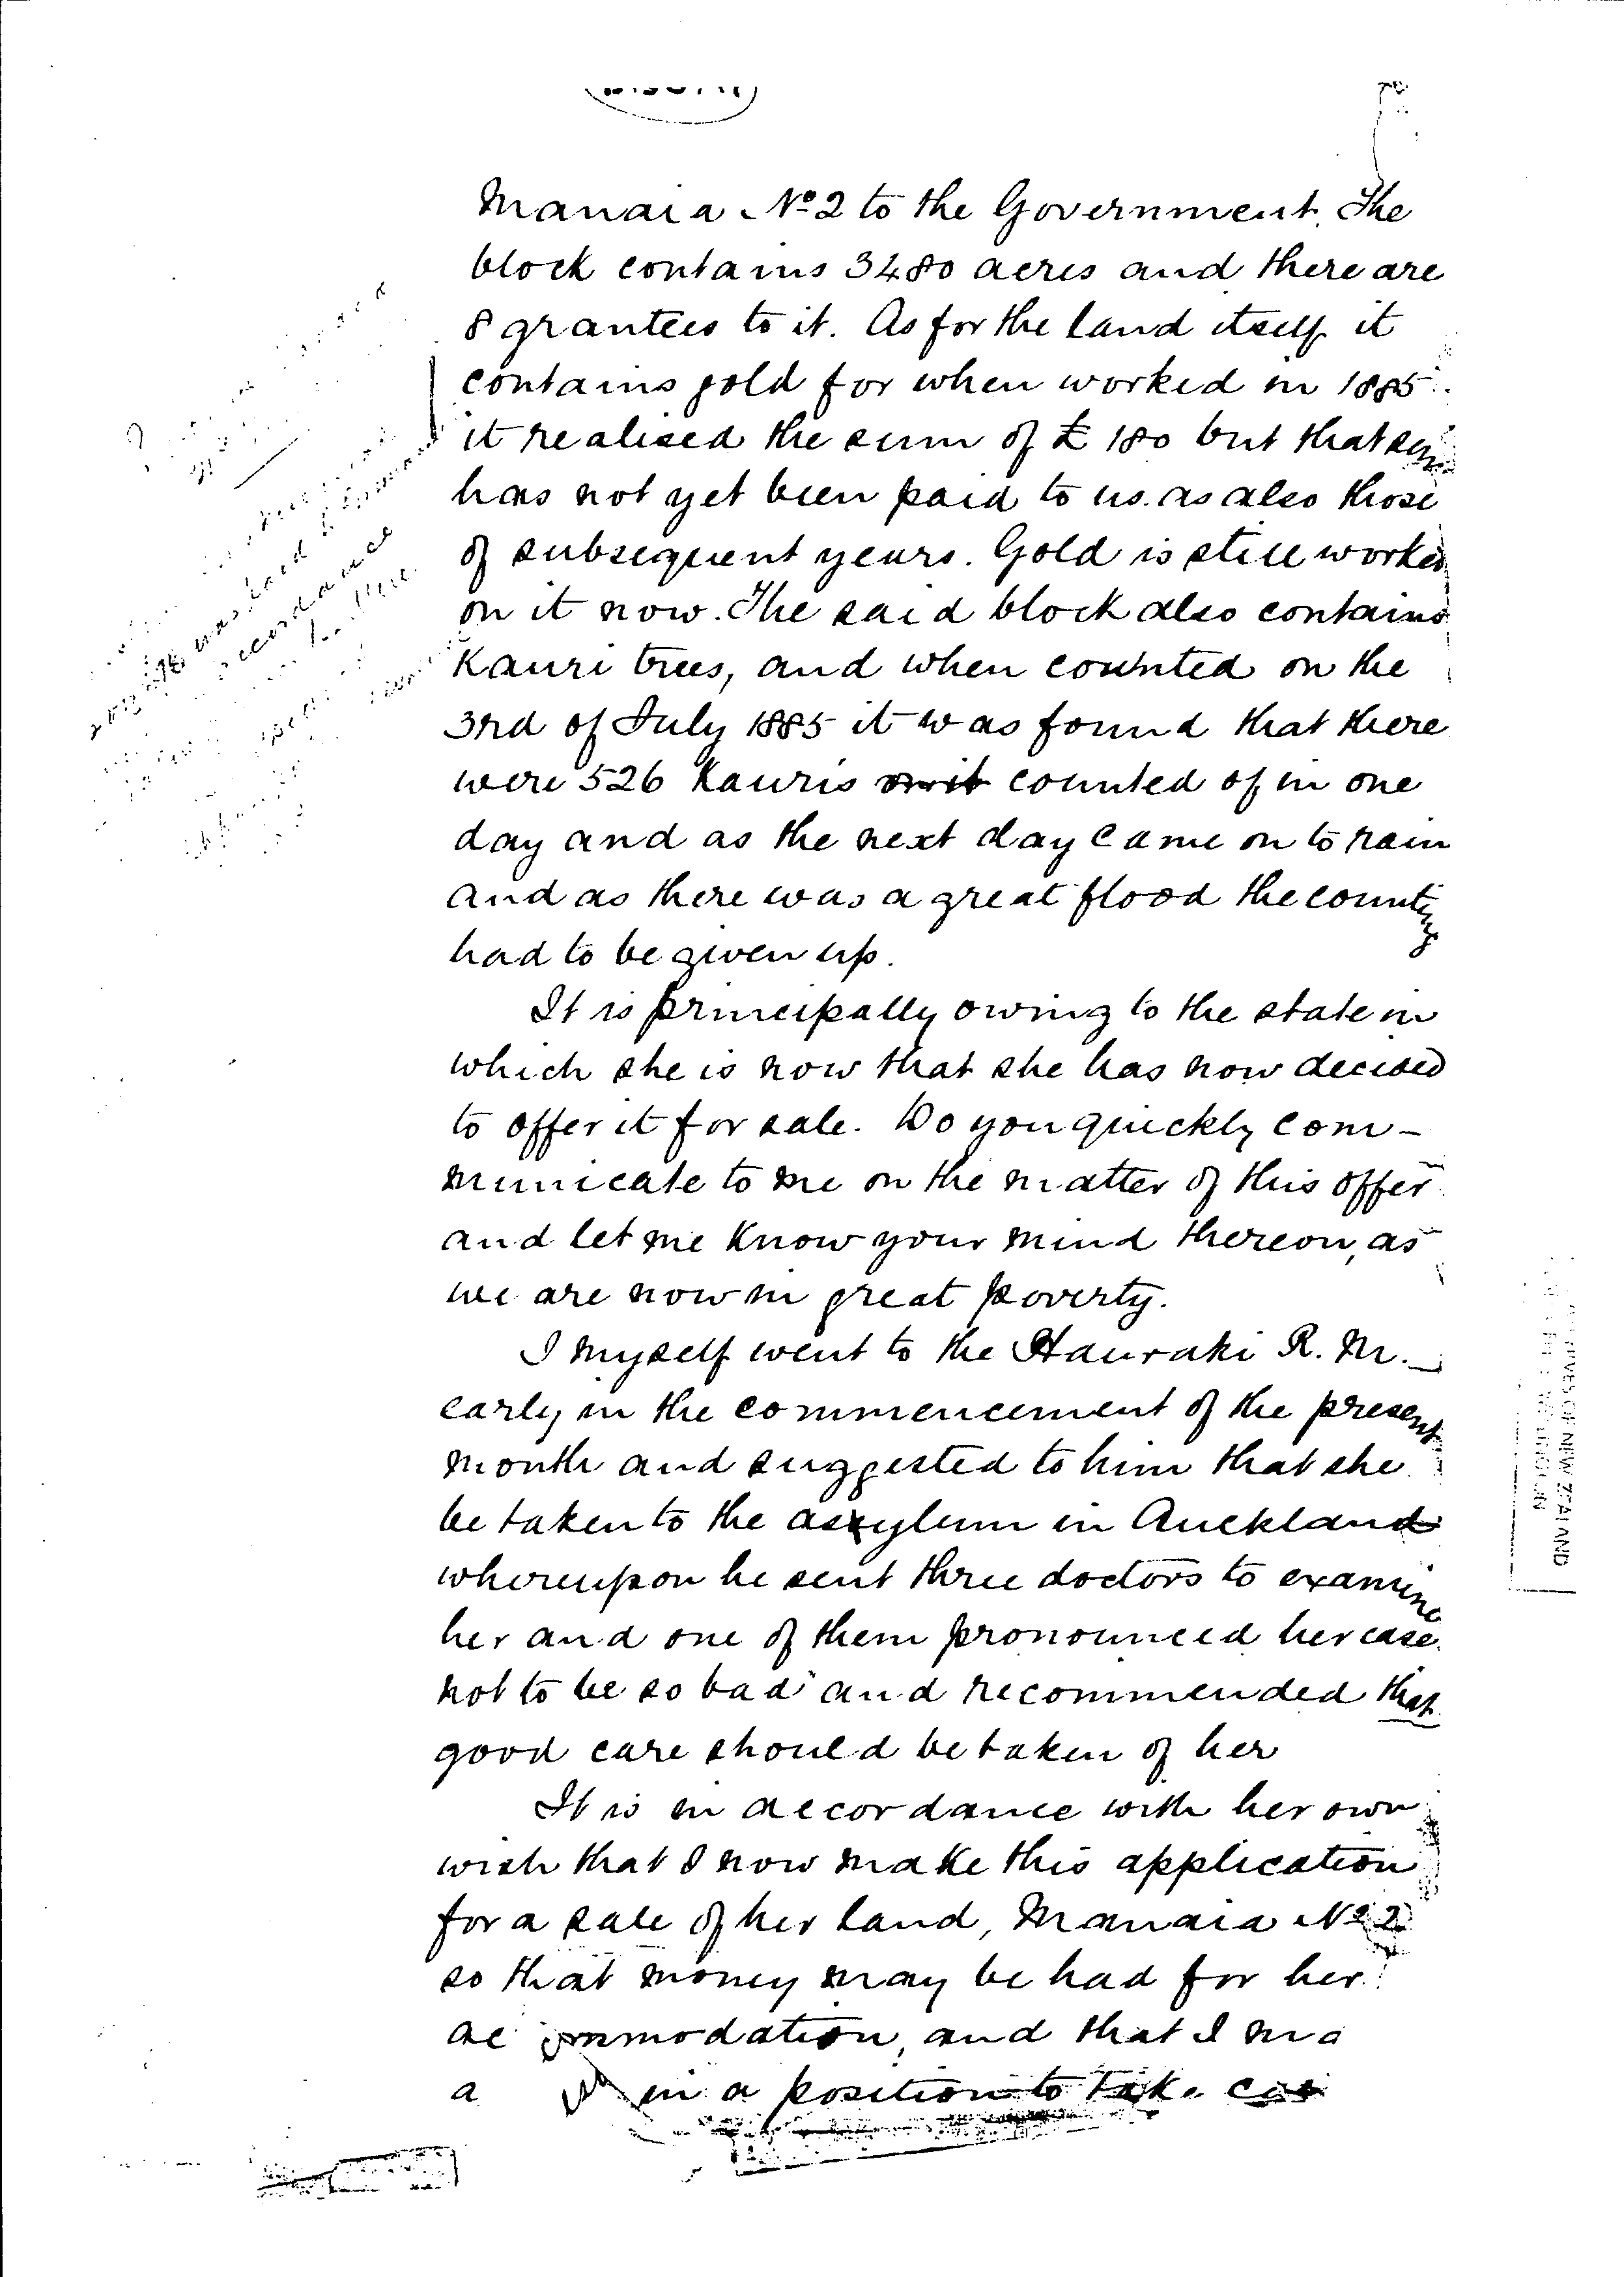 Manaia No 2 to the Government. The
block contains 3480 acres and there are
8 grantees to it. As for the land itself it
contains gold for when worked in 1885
it realised the sum of £180 but that sum
has not yet been paid to us. as also those
of subsequent years. Gold is still worked
on it now. The said block also contains
Kauri trees, and when counted on the
3rd of July 1885 it was found that there
were 526 Kauris counted of in one
day and as the next day came on to rain
and as there was a great flood the counting
had to be given up.
It is principally owing to the state in
which she is now that she has now decided
to offer it for sale. Do you quickly com-
municate to me on the matter of this offer
and let me know your mind thereon, as
we are now in great poverty.
I myself went to the Hauraki R. M.
early in the commencement of the present
month and suggested to him that she
be taken to the asylum in Auckland
whereupon he sent three doctors to examine
her and one of them pronounced her case
not to be so bad and recommended that
good care should be taken of her
It is in accordance with her own
wish that I now make this application
for a sale of her land, Manaia No 2
so that money may be had for her
ac ommodation, and that I
in a position to take
was
accordance
NEW ZEALAND